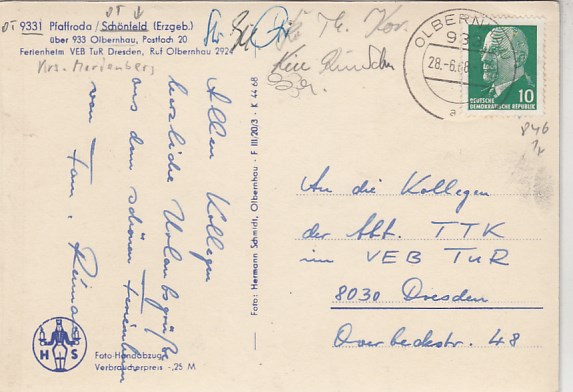 OT
OT
9331 Pfaffroda / Schönfeld (Erzgeb.)
über 933 Olbernhau, Postfach 20
Ferienheim VEB TuR Dresden, Ruf Olbernhau 2924
Krs. Marienberg
Allen Kollegen
herzliche Urlaubsgrüße
aus dem schönen Ferienheim
von Fam.
H S
Foto-Handabzug
Verbraucherpreis -,25 M
Foto: Hermann Schmidt, Olbernhau · F III/20/3 · K 44 68
OLBERNHAU
933
28.-6.68
a
10
DEUTSCHE
DEMOKRATISCHE REPUBLIK
An die Kollegen
der Abt. TTK
im VEB TuR
8030 Dresden
Overbeckstr. 48